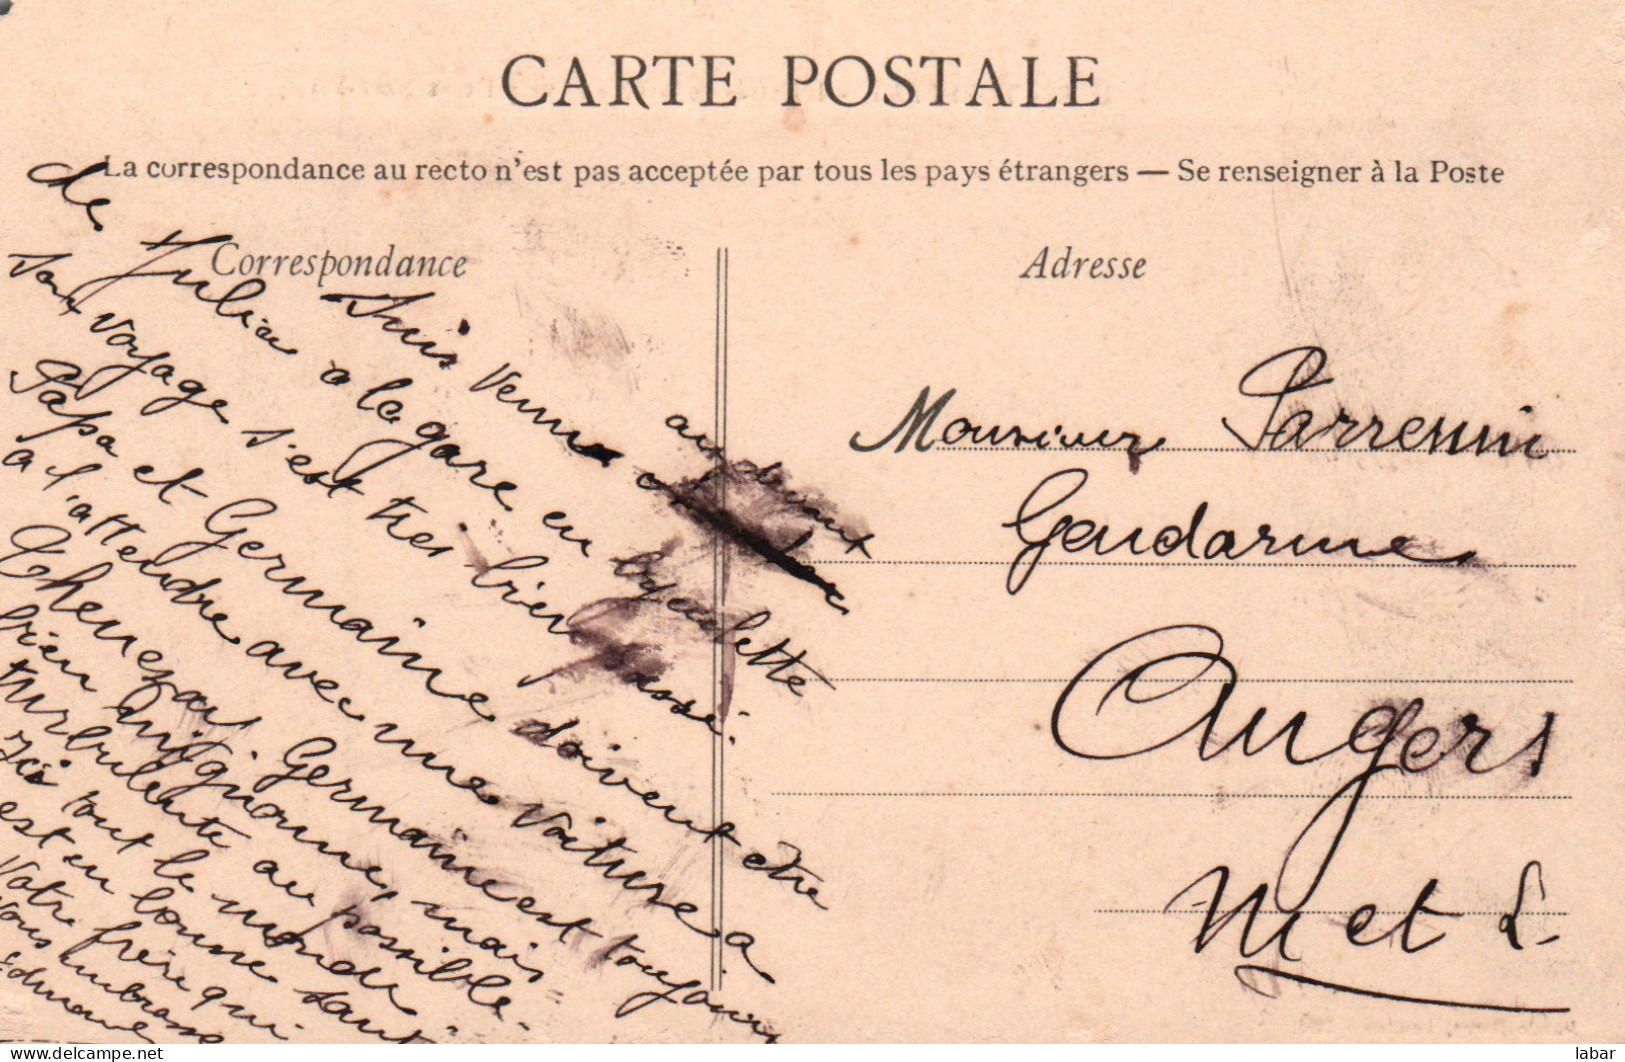 CARTE POSTALE
La correspondance au recto n'est pas acceptée par tous les pays étrangers — Se renseigner à la Poste
Correspondance
Adresse
Suis venue au devant
de Julien a la gare en byciclette
son voyage s'est très bien passé.
Papa et Germaine doivent etre
a l'attendre avec une voiture a
Germaine est toujours
bien mignonne, mais
turbulente au possible.
Ici tout le monde
est en bonne santé
Votre frère qui
vous embrasse
Edmond
Monsieur
Gendarme
Angers
M et L.
delcampe.net
labar